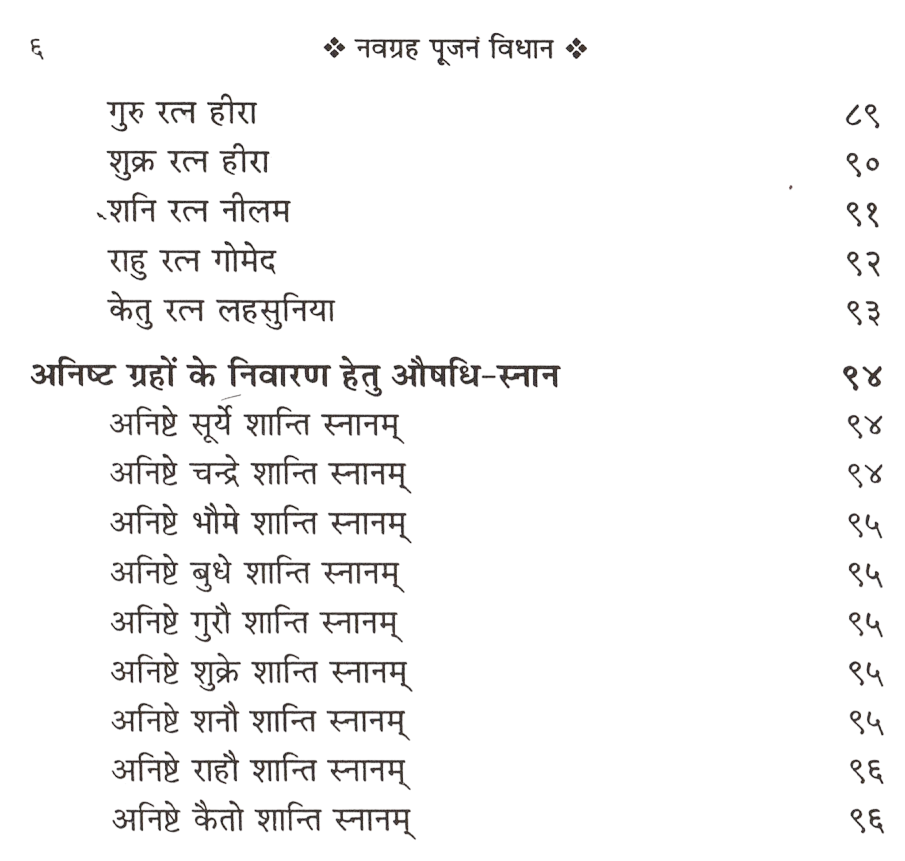 ६ ❖ नवग्रह पूजनं विधान ❖
गुरु रत्न हीरा ८९
शुक्र रत्न हीरा ९०
शनि रत्न नीलम ९१
राहु रत्न गोमेद ९२
केतु रत्न लहसुनिया ९३
अनिष्ट ग्रहों के निवारण हेतु औषधि-स्नान ९४
अनिष्टे सूर्ये शान्ति स्नानम् ९४
अनिष्टे चन्द्रे शान्ति स्नानम् ९४
अनिष्टे भौमे शान्ति स्नानम् ९५
अनिष्टे बुधे शान्ति स्नानम् ९५
अनिष्टे गुरौ शान्ति स्नानम् ९५
अनिष्टे शुक्रे शान्ति स्नानम् ९५
अनिष्टे शनौ शान्ति स्नानम् ९५
अनिष्टे राहौ शान्ति स्नानम् ९६
अनिष्टे कैतो शान्ति स्नानम् ९६